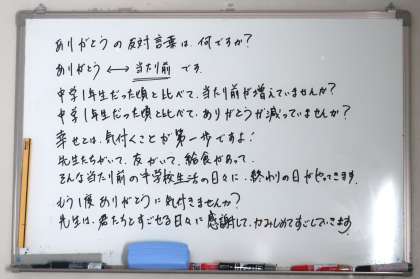 ありがとうの反対言葉は、何ですか？
ありがとう ⟷ 当たり前 です。
中学1年生だった頃と比べて、当たり前が増えていませんか？
中学1年生だった頃と比べて、ありがとうが減っていませんか？
幸せとは、気付くことが第一歩ですよ！
先生たちがいて、友がいて、給食があって、
そんな当たり前の中学校生活の日々に、終わりの日がやってきます。
もう1度ありがとうに気付きませんか？
先生は、君たちとすごせる日々に感謝して、かみしめてすごしていきます